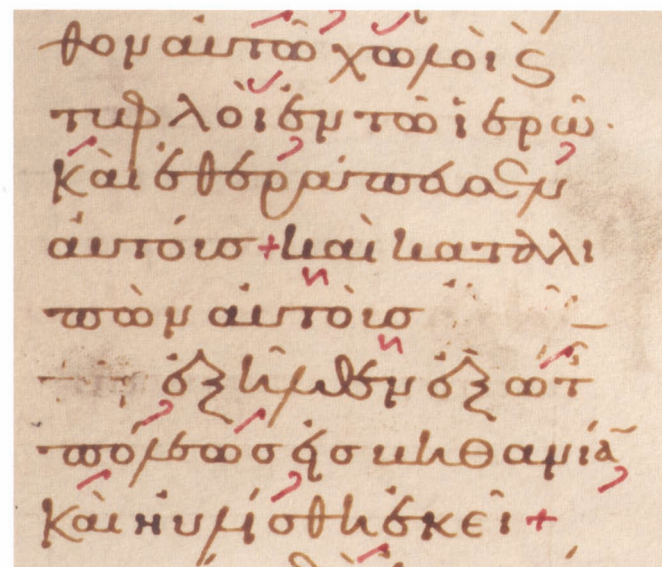 θον αὐτῶ χωλοὶ ϗ
τυφλοὶ ἐν τῶ ἱερῶ·
Καὶ ἐθεράπευσεν
αὐτούσ + καὶ καταλι
πὼν αὐτοὺσ
ἐξῆλθεν ἔξω τῆ
πόλεωσ εἰσ βηθανίᾱ
Καὶ ηὐλίσθη ἐκεῖ +